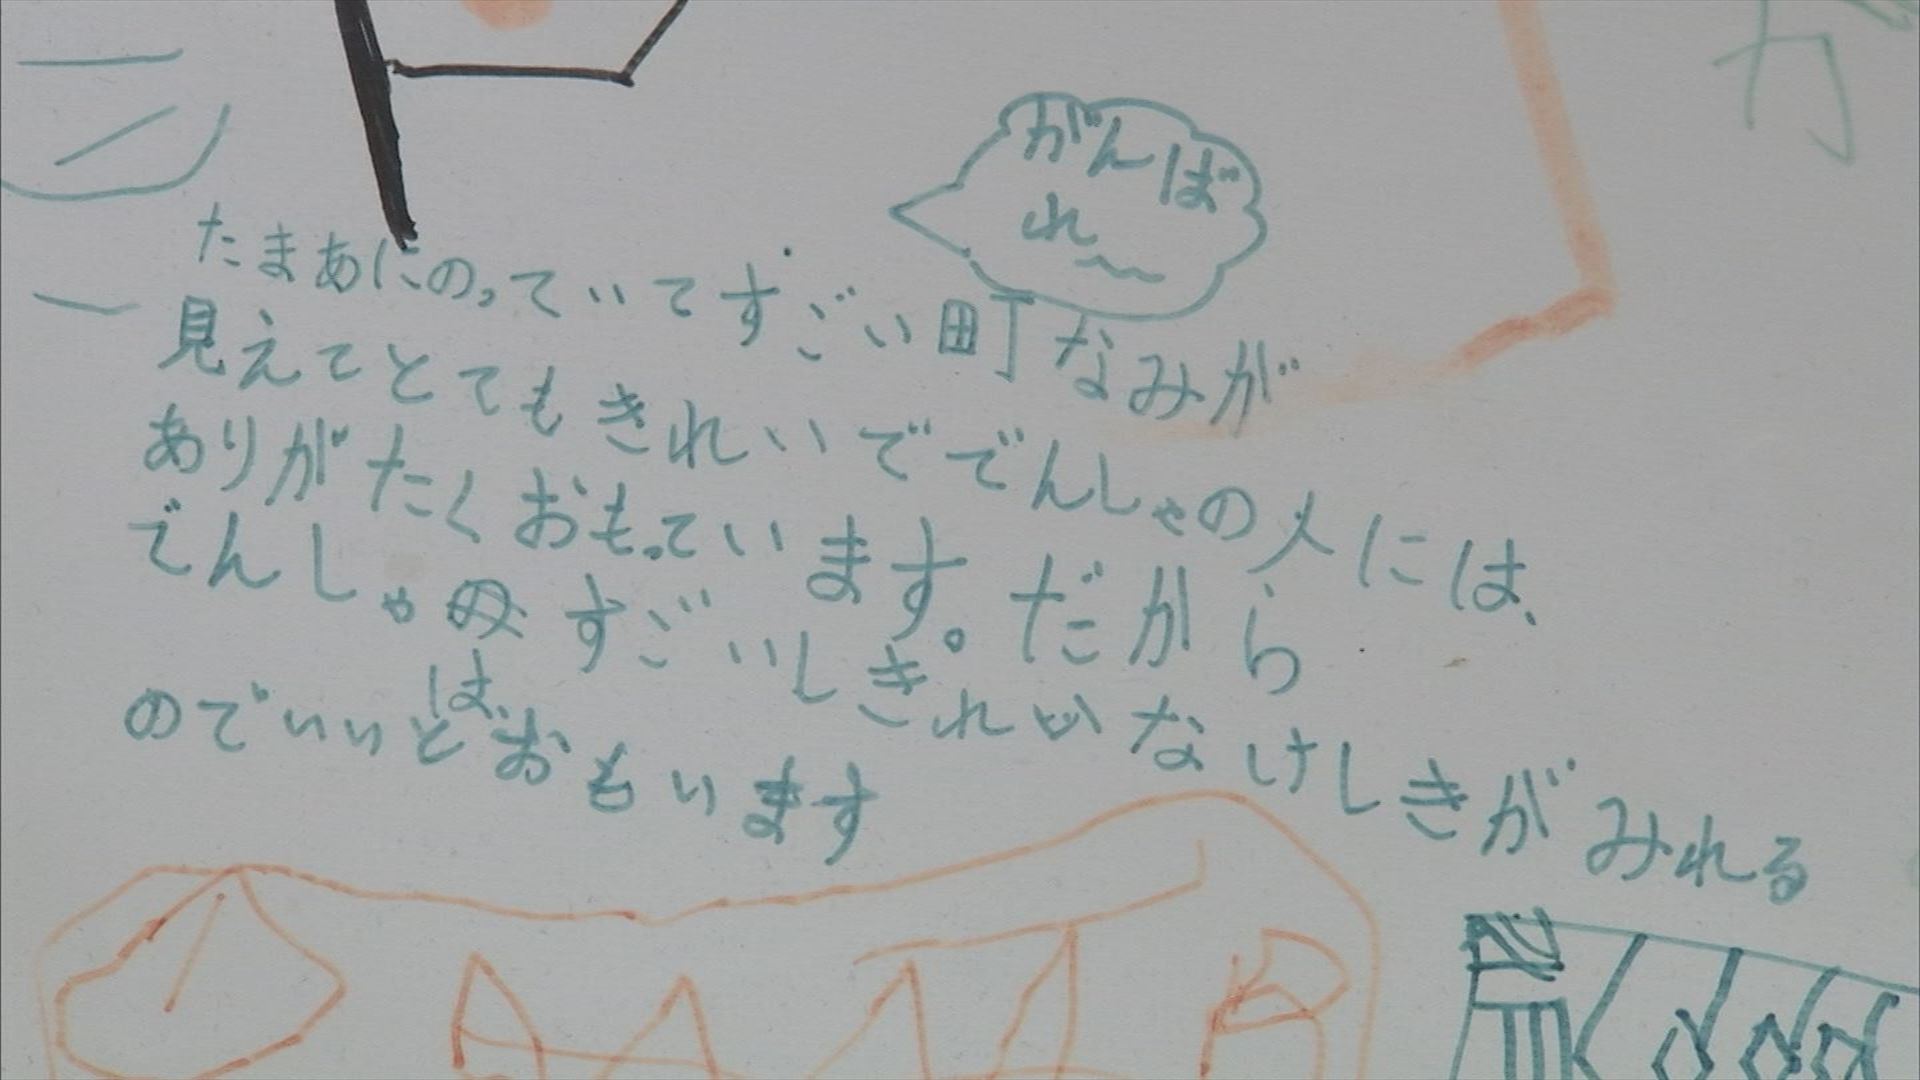 がんば
れ〜
たまあにのっていてすごい町なみが
見えてとてもきれいででんしゃの人には、
ありがたくおもっています。だから
でんしゃは、すごいしきれいなけしきがみれる
のでいいとおもいます